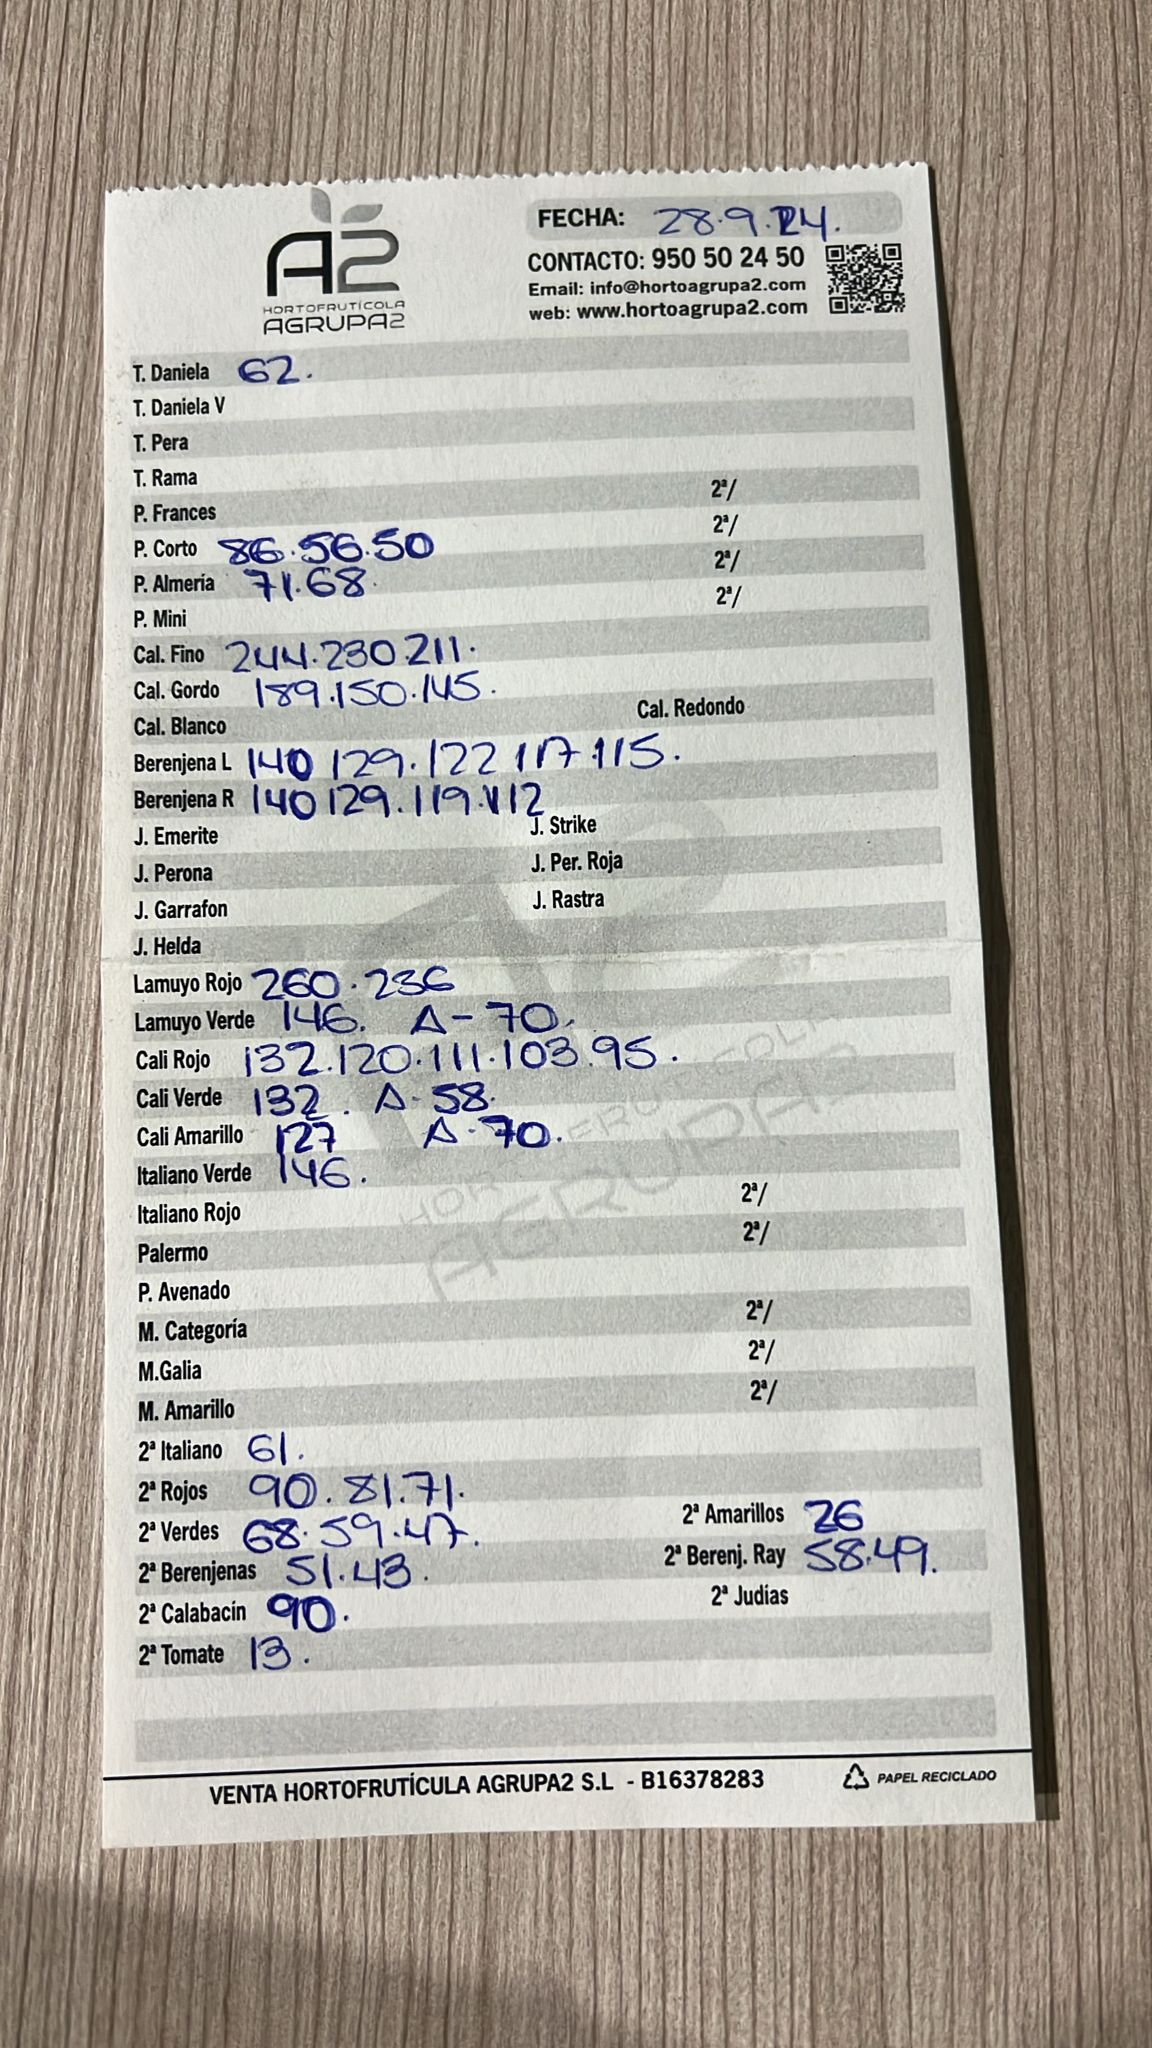 A2
HORTOFRUTÍCOLA
AGRUPA2
FECHA: 28.9.24.
CONTACTO: 950 50 24 50
Email: info@hortoagrupa2.com
web: www.hortoagrupa2.com
T. Daniela 62.
T. Daniela V
T. Pera
T. Rama
P. Frances 2ª/
P. Corto 86.56.50 2ª/
P. Almería 71.68. 2ª/
P. Mini 2ª/
Cal. Fino 244.230.211.
Cal. Gordo 189.150.145.
Cal. Blanco Cal. Redondo
Berenjena L 140 129.122 117.115.
Berenjena R 140 129.119.112
J. Emerite J. Strike
J. Perona J. Per. Roja
J. Garrafon J. Rastra
J. Helda
Lamuyo Rojo 260.236
Lamuyo Verde 146. A-70.
Cali Rojo 132.120.111.103.95.
Cali Verde 132. A-58.
Cali Amarillo 127 A-70.
Italiano Verde 146.
Italiano Rojo 2ª/
Palermo 2ª/
P. Avenado
M. Categoría 2ª/
M.Galia 2ª/
M. Amarillo 2ª/
2ª Italiano 61.
2ª Rojos 90.81.71.
2ª Verdes 68.59.47. 2ª Amarillos 26
2ª Berenjenas 51.43. 2ª Berenj. Ray 58.49.
2ª Calabacín 90. 2ª Judías
2ª Tomate 13.
VENTA HORTOFRUTÍCULA AGRUPA2 S.L - B16378283
PAPEL RECICLADO